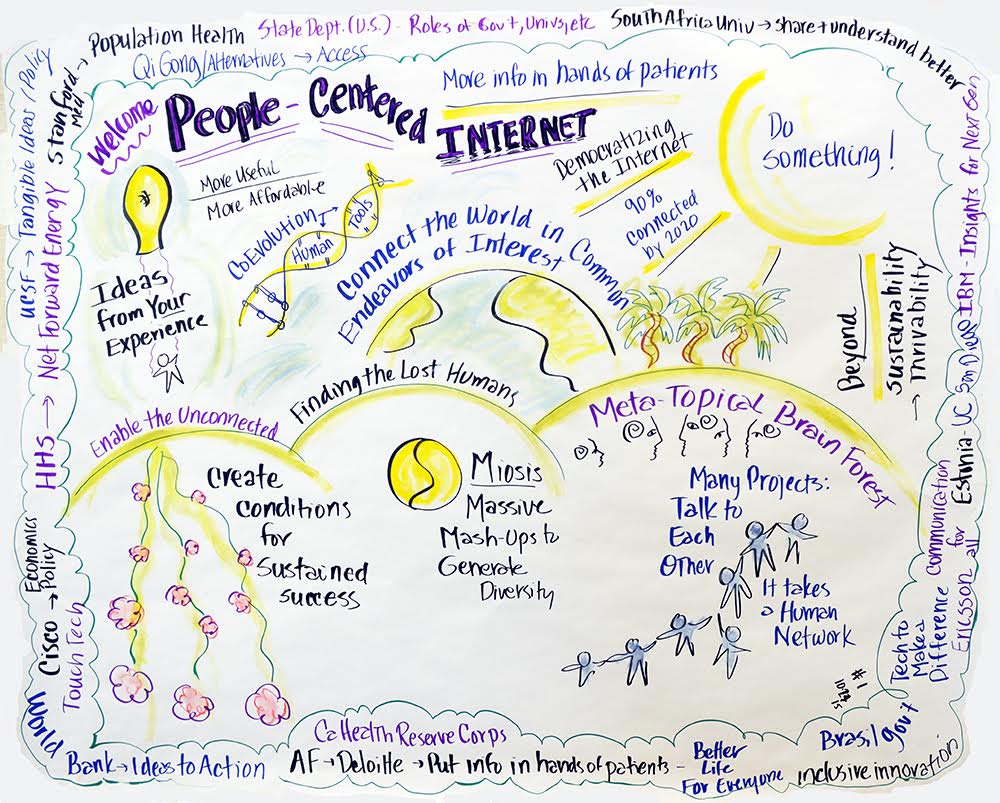 Population Health
State Dept. (U.S.) - Roles of Gov't, Univs, etc
South Africa Univ → Share + understand better
Qi Gong/Alternatives → Access
Stanford Med →
UCSF → Tangible Ideas / Policy
HHS → Net Forward Energy
Cisco → Economics Policy
Touch Tech
World Bank → Ideas to Action
Ca Health Reserve Corps
AF → Deloitte → Put info in hands of patients -
Better
Life
For Everyone
Inclusive innovation
Brasil gov't
Tech to
Make a
Difference
Ericsson
Communication
for
all
Estinia - UC San Diego
IBM - Insights for Next Gen
Welcome
People-Centered
INTERNET
More info in hands of patients
Do
something!
More Useful
More Affordable
Democratizing
the Internet
90%
Connected
by 2020
CoEvolution →
Human
Tools
Connect the World in Common
Endeavors of Interest
Ideas
from Your
Experience
Beyond
Sustainability
→ Thrivability
Enable the Unconnected
Finding the Lost Humans
Meta-Topical Brain Forest
Create
conditions
for
Sustained
success
Miosis
Massive
Mash-Ups to
Generate
Diversity
Many Projects:
Talk to
Each
Other
It takes
a Human
Network
#1